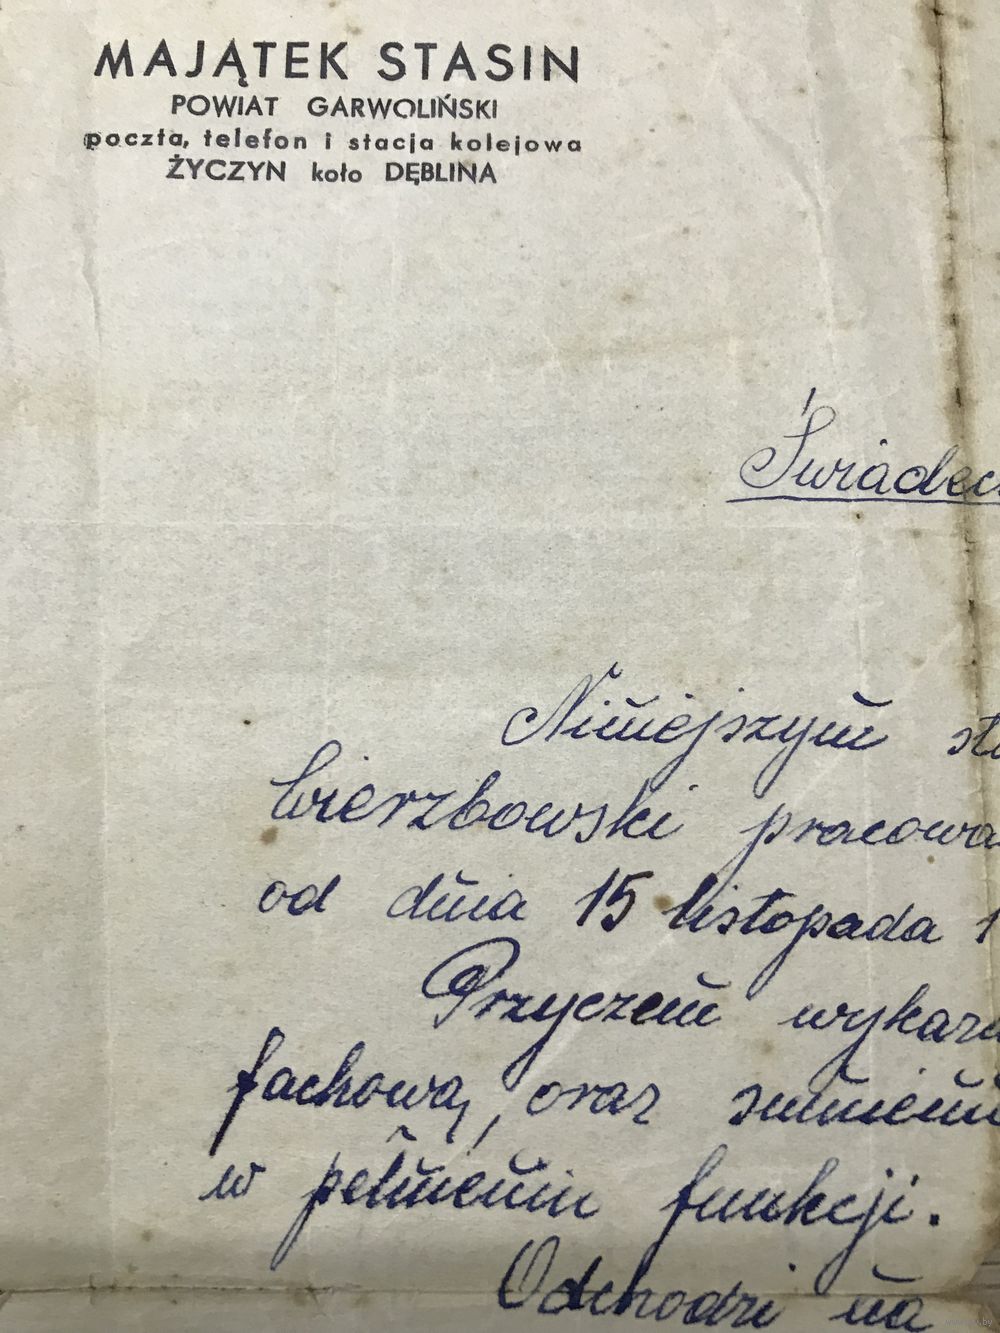 MAJĄTEK STASIN
POWIAT GARWOLIŃSKI
poczta, telefon i stacja kolejowa
ŻYCZYN koło DĘBLINA
Świadec
Niniejszym st
Wierzbowski pracowa
od dnia 15 listopada 1
Przyczem wykaza
fachową, oraz sumienn
w pełnieniu funkcji.
Odchodzi na